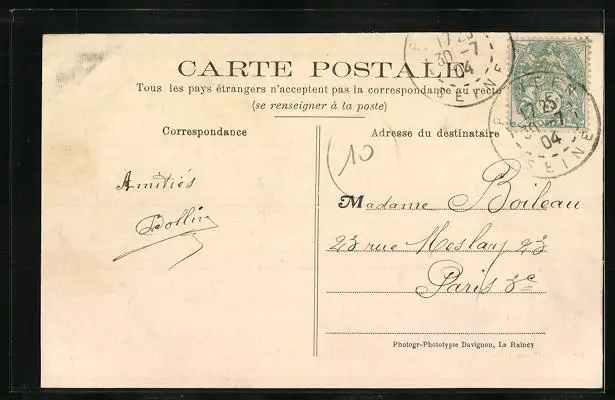 CARTE POSTALE
Tous les pays étrangers n'acceptent pas la correspondance au recto
(se renseigner à la poste)
Correspondance
Adresse du destinataire
10
Amitiés
Dollin
Madame Boileau
23 rue Meslay 23
Paris 3e
Photogr-Phototypie Davignon, Le Raincy
17 25
30 -7
04
SEINE
25
30 -7
04
SEINE